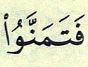 فَتَمَنَّوُاْ